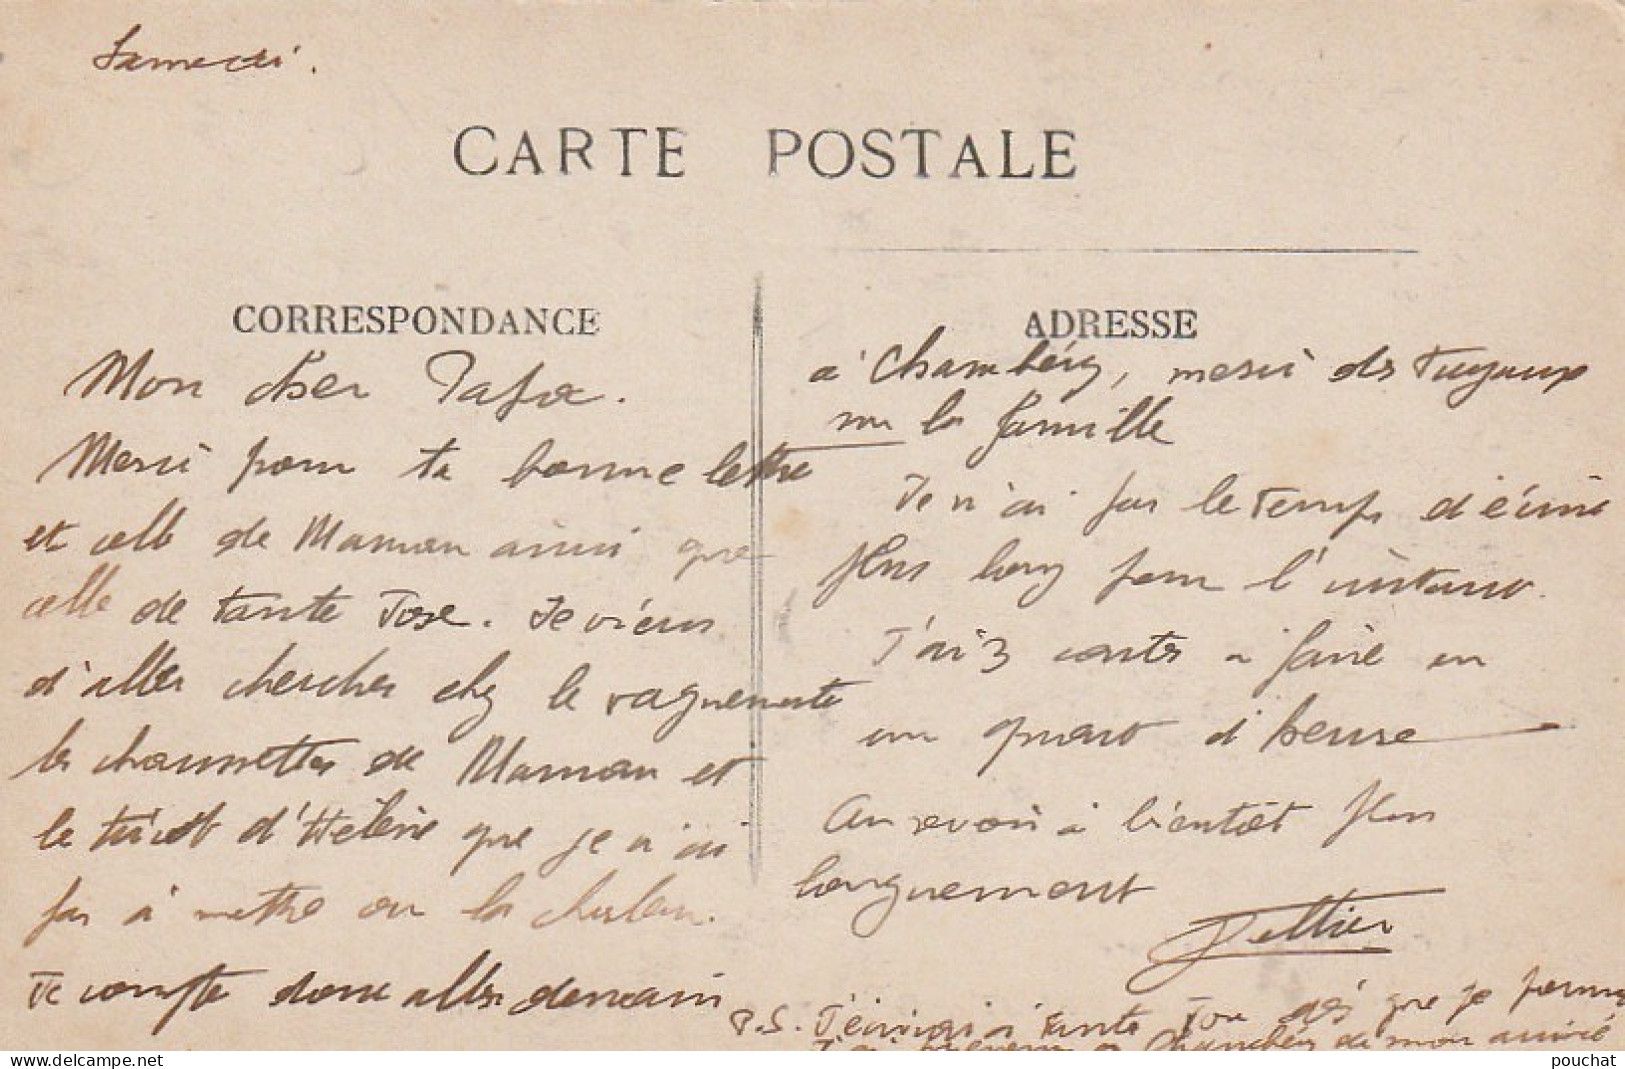 Samedi.
CARTE POSTALE
CORRESPONDANCE
Mon cher Papa.
Merci pour ta bonne lettre
et celle de Maman ainsi que
celle de tante Jose. Je viens
d'aller chercher chez le vaguemestre
les chaussettes de Maman et
le tricot d'Hélène que je n'ai
pas à mettre vu la chaleur.
Je compte donc aller demain
ADRESSE
à Chambéry, merci des tuyaux
sur la famille
Je n'ai pas le temps d'écrire
plus long pour l'instant.
J'ai 3 cartes à faire en
un quart d'heure
Au revoir à bientôt plus
longuement
Pelletier
P.S. J'écrirai à tante Jose dès que je
à Chambéry de mon
delcampe.net
pouchat